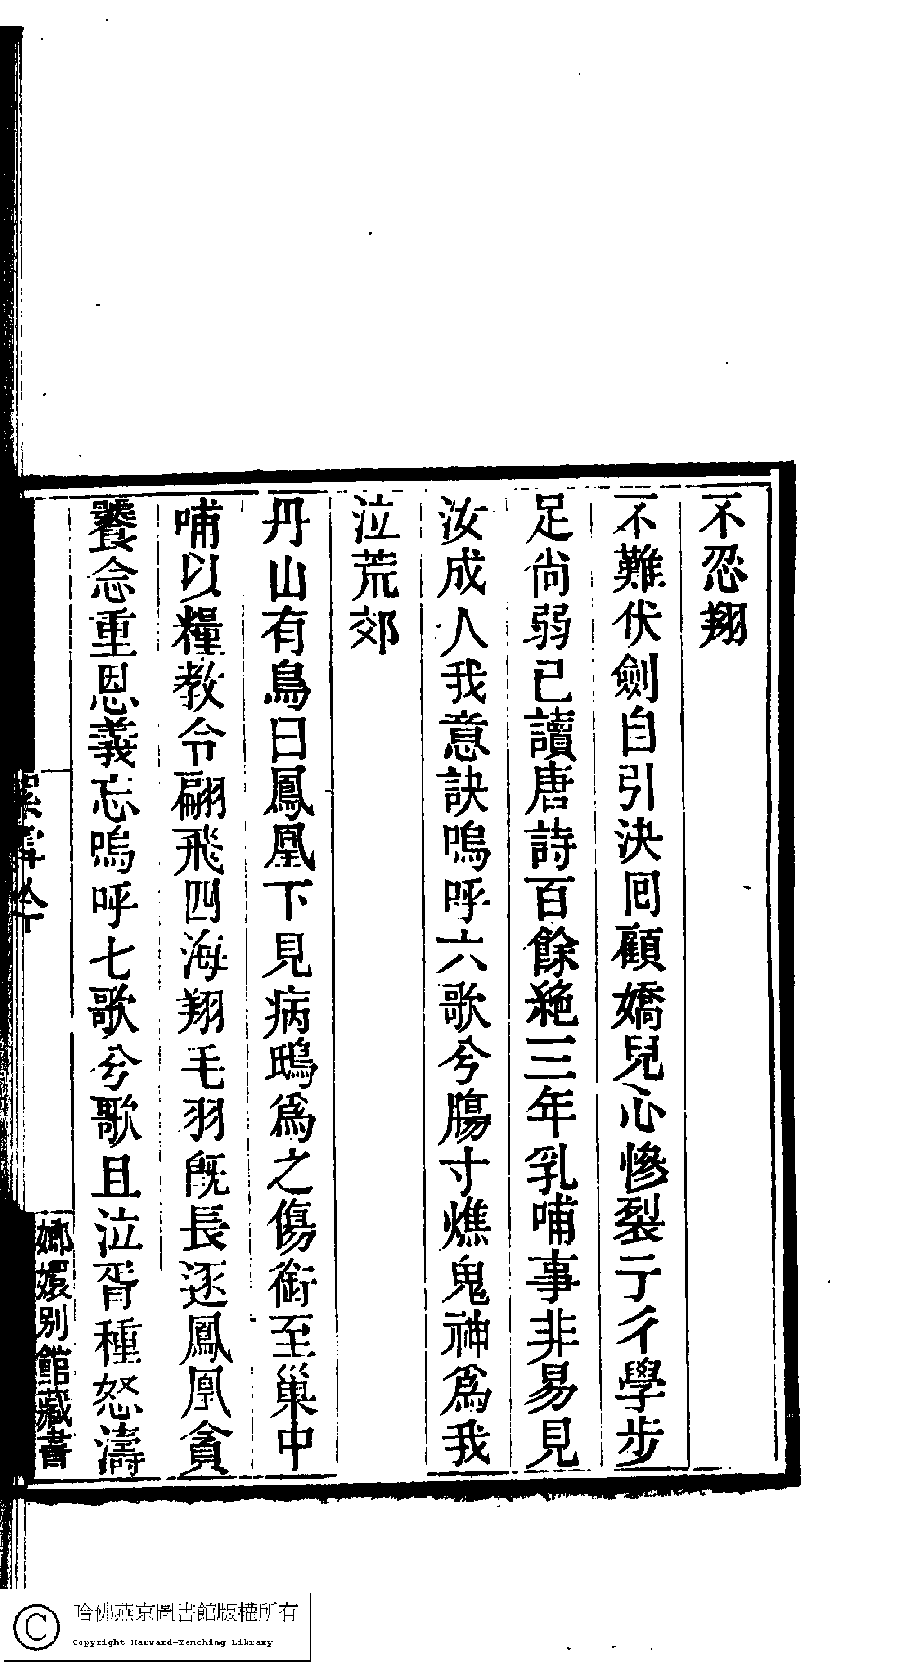 不忍翔
不難伏劍自引決囘顧嬌兒心慘裂亍彳學步
足尙弱已讀唐詩百餘絶三年乳哺事非易見
汝成人我意訣嗚呼六歌兮膓寸燋鬼神爲我
泣荒郊
丹山有鳥曰鳳凰下見病鴟爲之傷銜至巢中
哺以糧教令翩飛四海翔毛羽旣長逐鳳凰貪
饕念重恩義忘嗚呼七歌兮歌且泣胥種怒濤
嫏嬛別館藏書
哈佛燕京圖書館版權所有
Copyright Harvard-Yenching Library